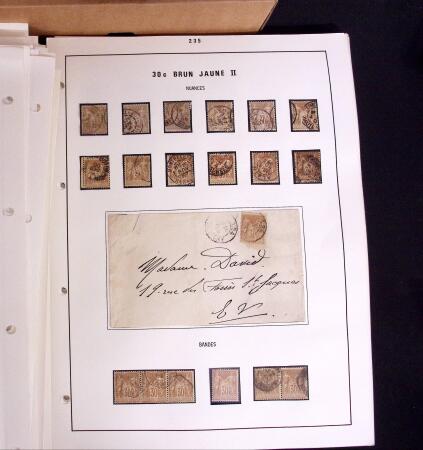 235
30c BRUN JAUNE II
NUANCES
Madame David
19 rue des Fossés St Jacques
E V
BANDES